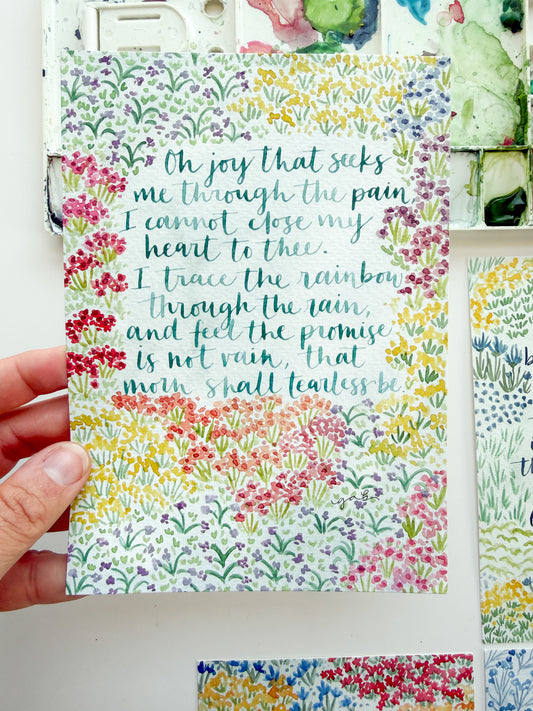 Oh joy that seeks
me through the pain,
I cannot close my
heart to thee.
I trace the rainbow
through the rain,
and feel the promise
is not vain, that
morn shall tearless be.